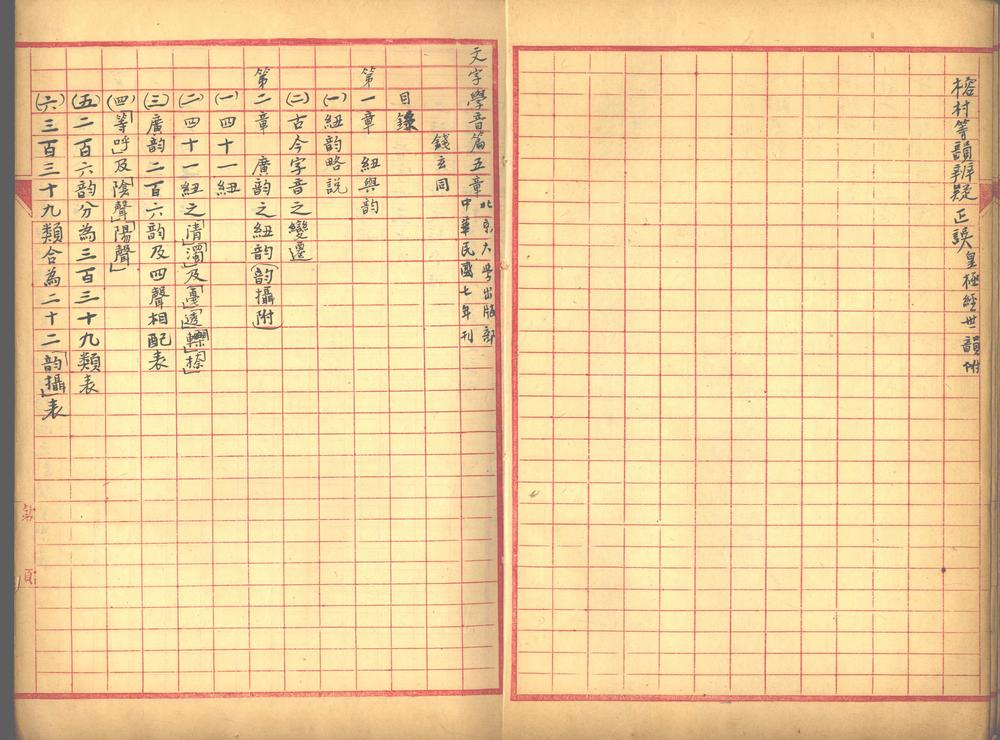 榕村等韻辨疑正誤 皇極經世韻附
文字學音篇五章 北京大學出版部 中華民國七年刊
錢玄同
目錄
第一章 紐與韵
(一)紐韵略説
(二)古今字音之變遷
第二章 廣韵之紐韵(韵攝附)
(一)四十一紐
(二)四十一紐之「清」「濁」及「戛」「透」「轢」「捺」
(三)廣韵二百六韵及四聲相配表
(四)「等呼」及「陰聲」「陽聲」
(五)二百六韵分為三百三十九類表
(六)三百三十九類合為二十二「韵攝」表
第 頁